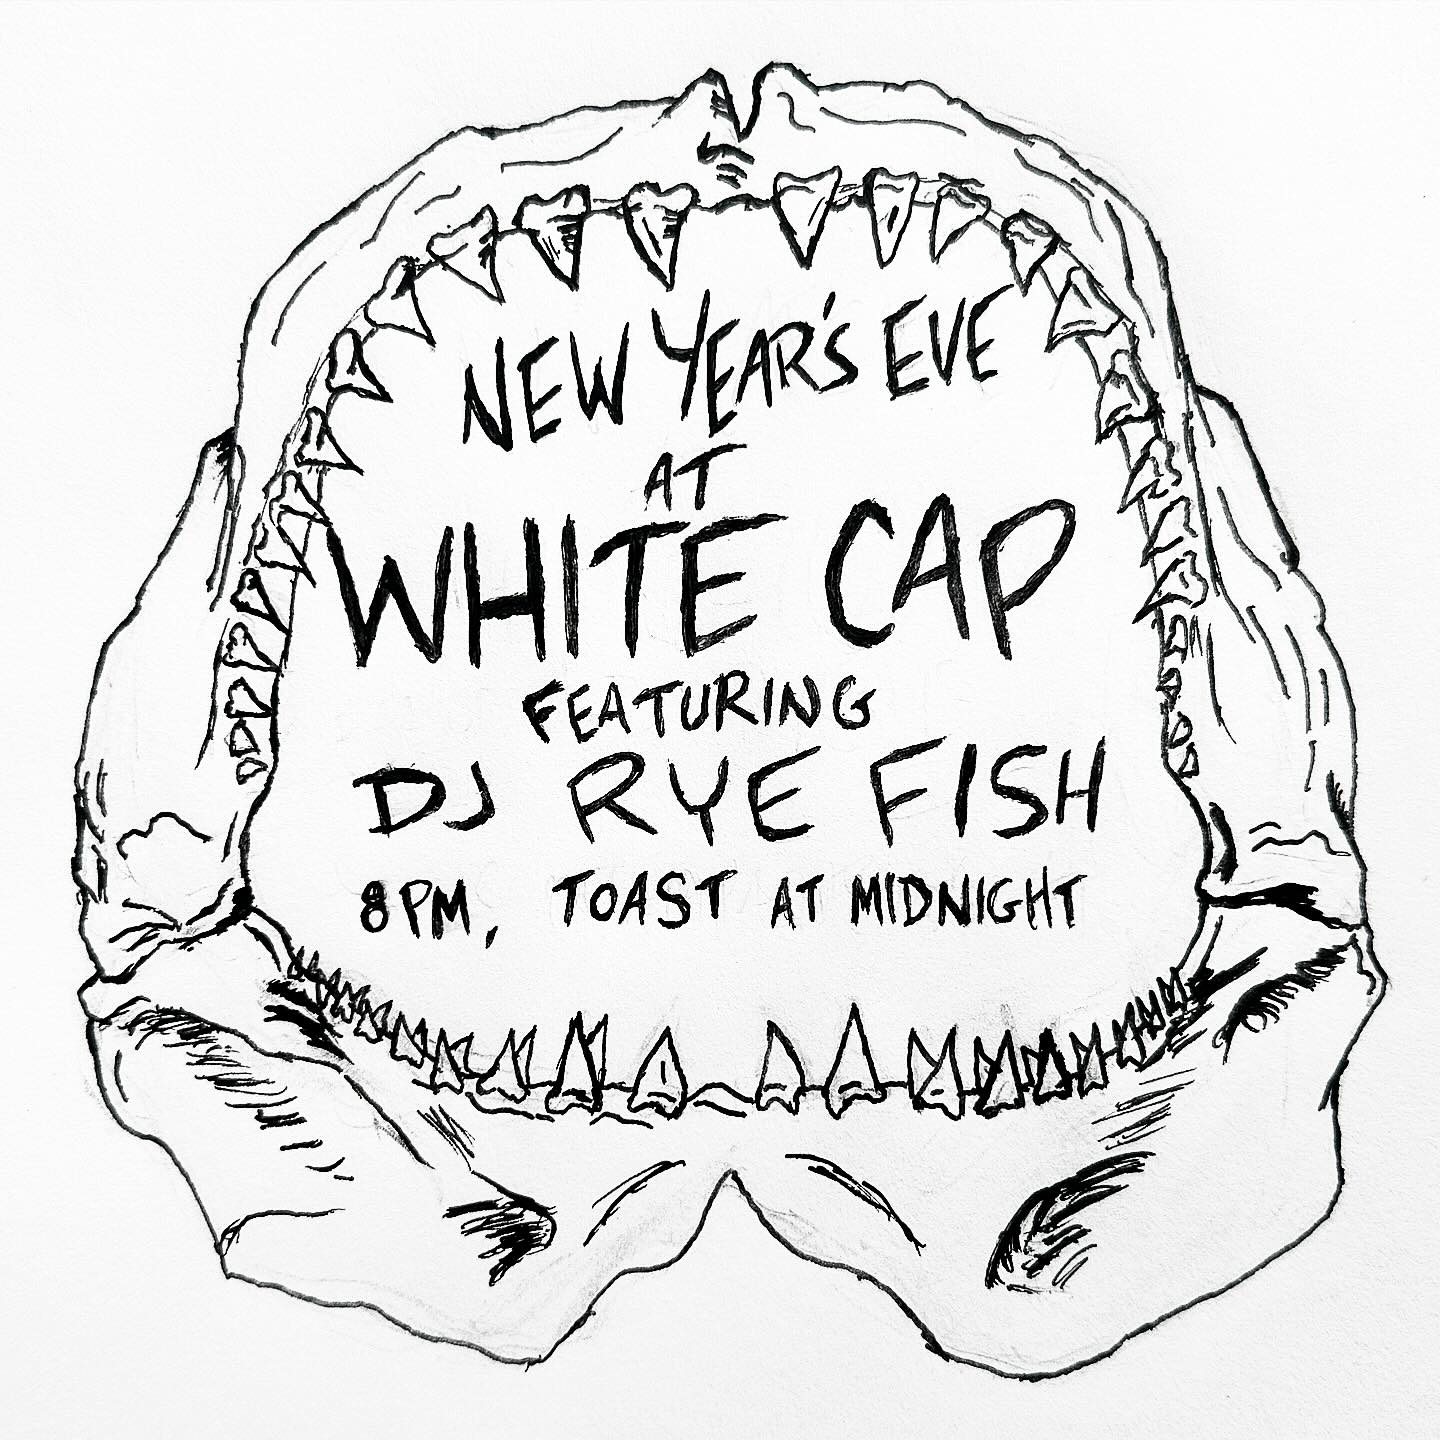 NEW YEAR'S EVE
AT
WHITE CAP
FEATURING
DJ RYE FISH
8PM, TOAST AT MIDNIGHT